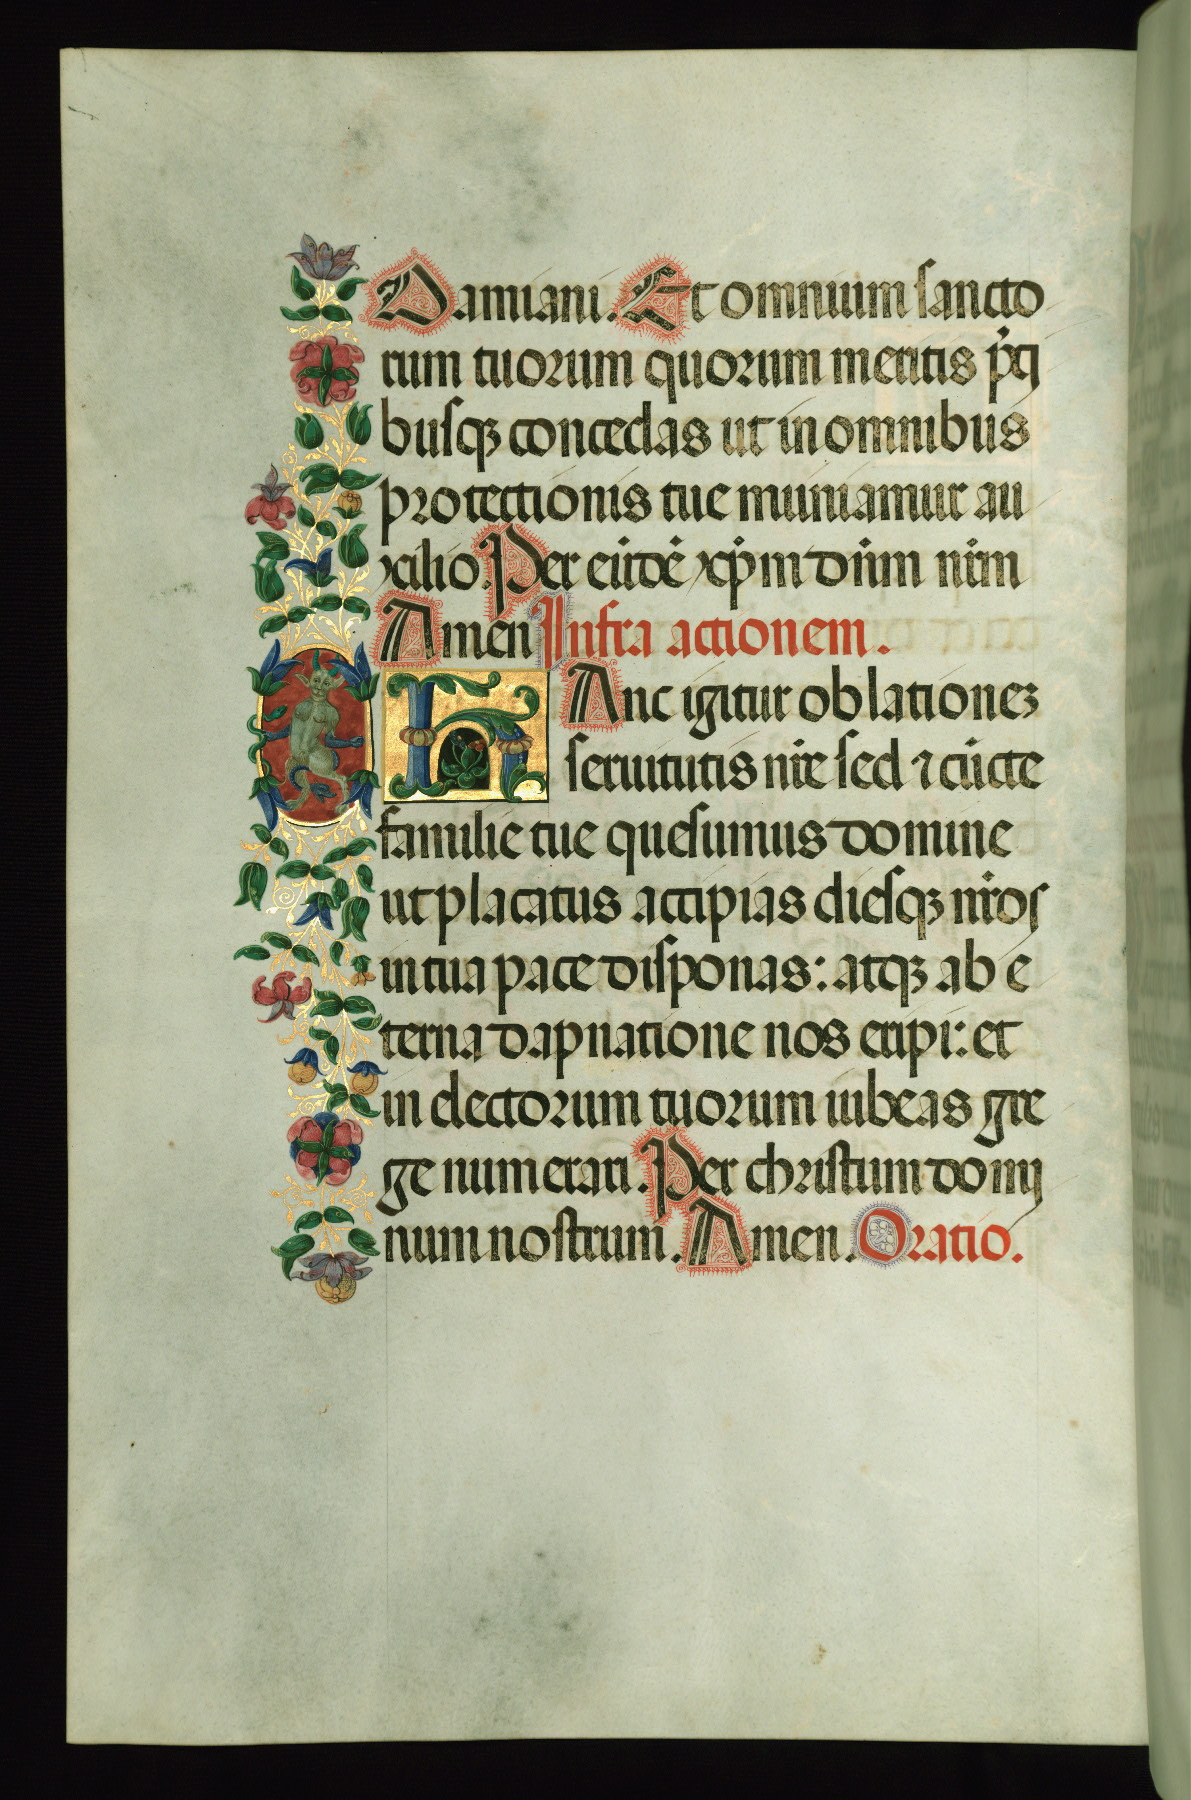 Damiani. Et omnium sancto
rum tuorum quorum meritis p̃cį
busqꝫ concedas ut in omnibus
protectionis tue muniamur au
xilio. Per eũdẽ xp̃m dñm nr̃m
Amen Infra actionem.
hAnc igitur oblationeꝫ
seruitutis nr̃e sed ⁊ cũcte
familie tue quesumus domine
ut placatus accipias diesqꝫ nr̃os
in tua pace disponas: atqꝫ ab e
terna dapnatione nos eripi: et
in electorum tuorum iubeas gre
ge numerari. Per christum domi
num nostrum. Amen. Oratio.